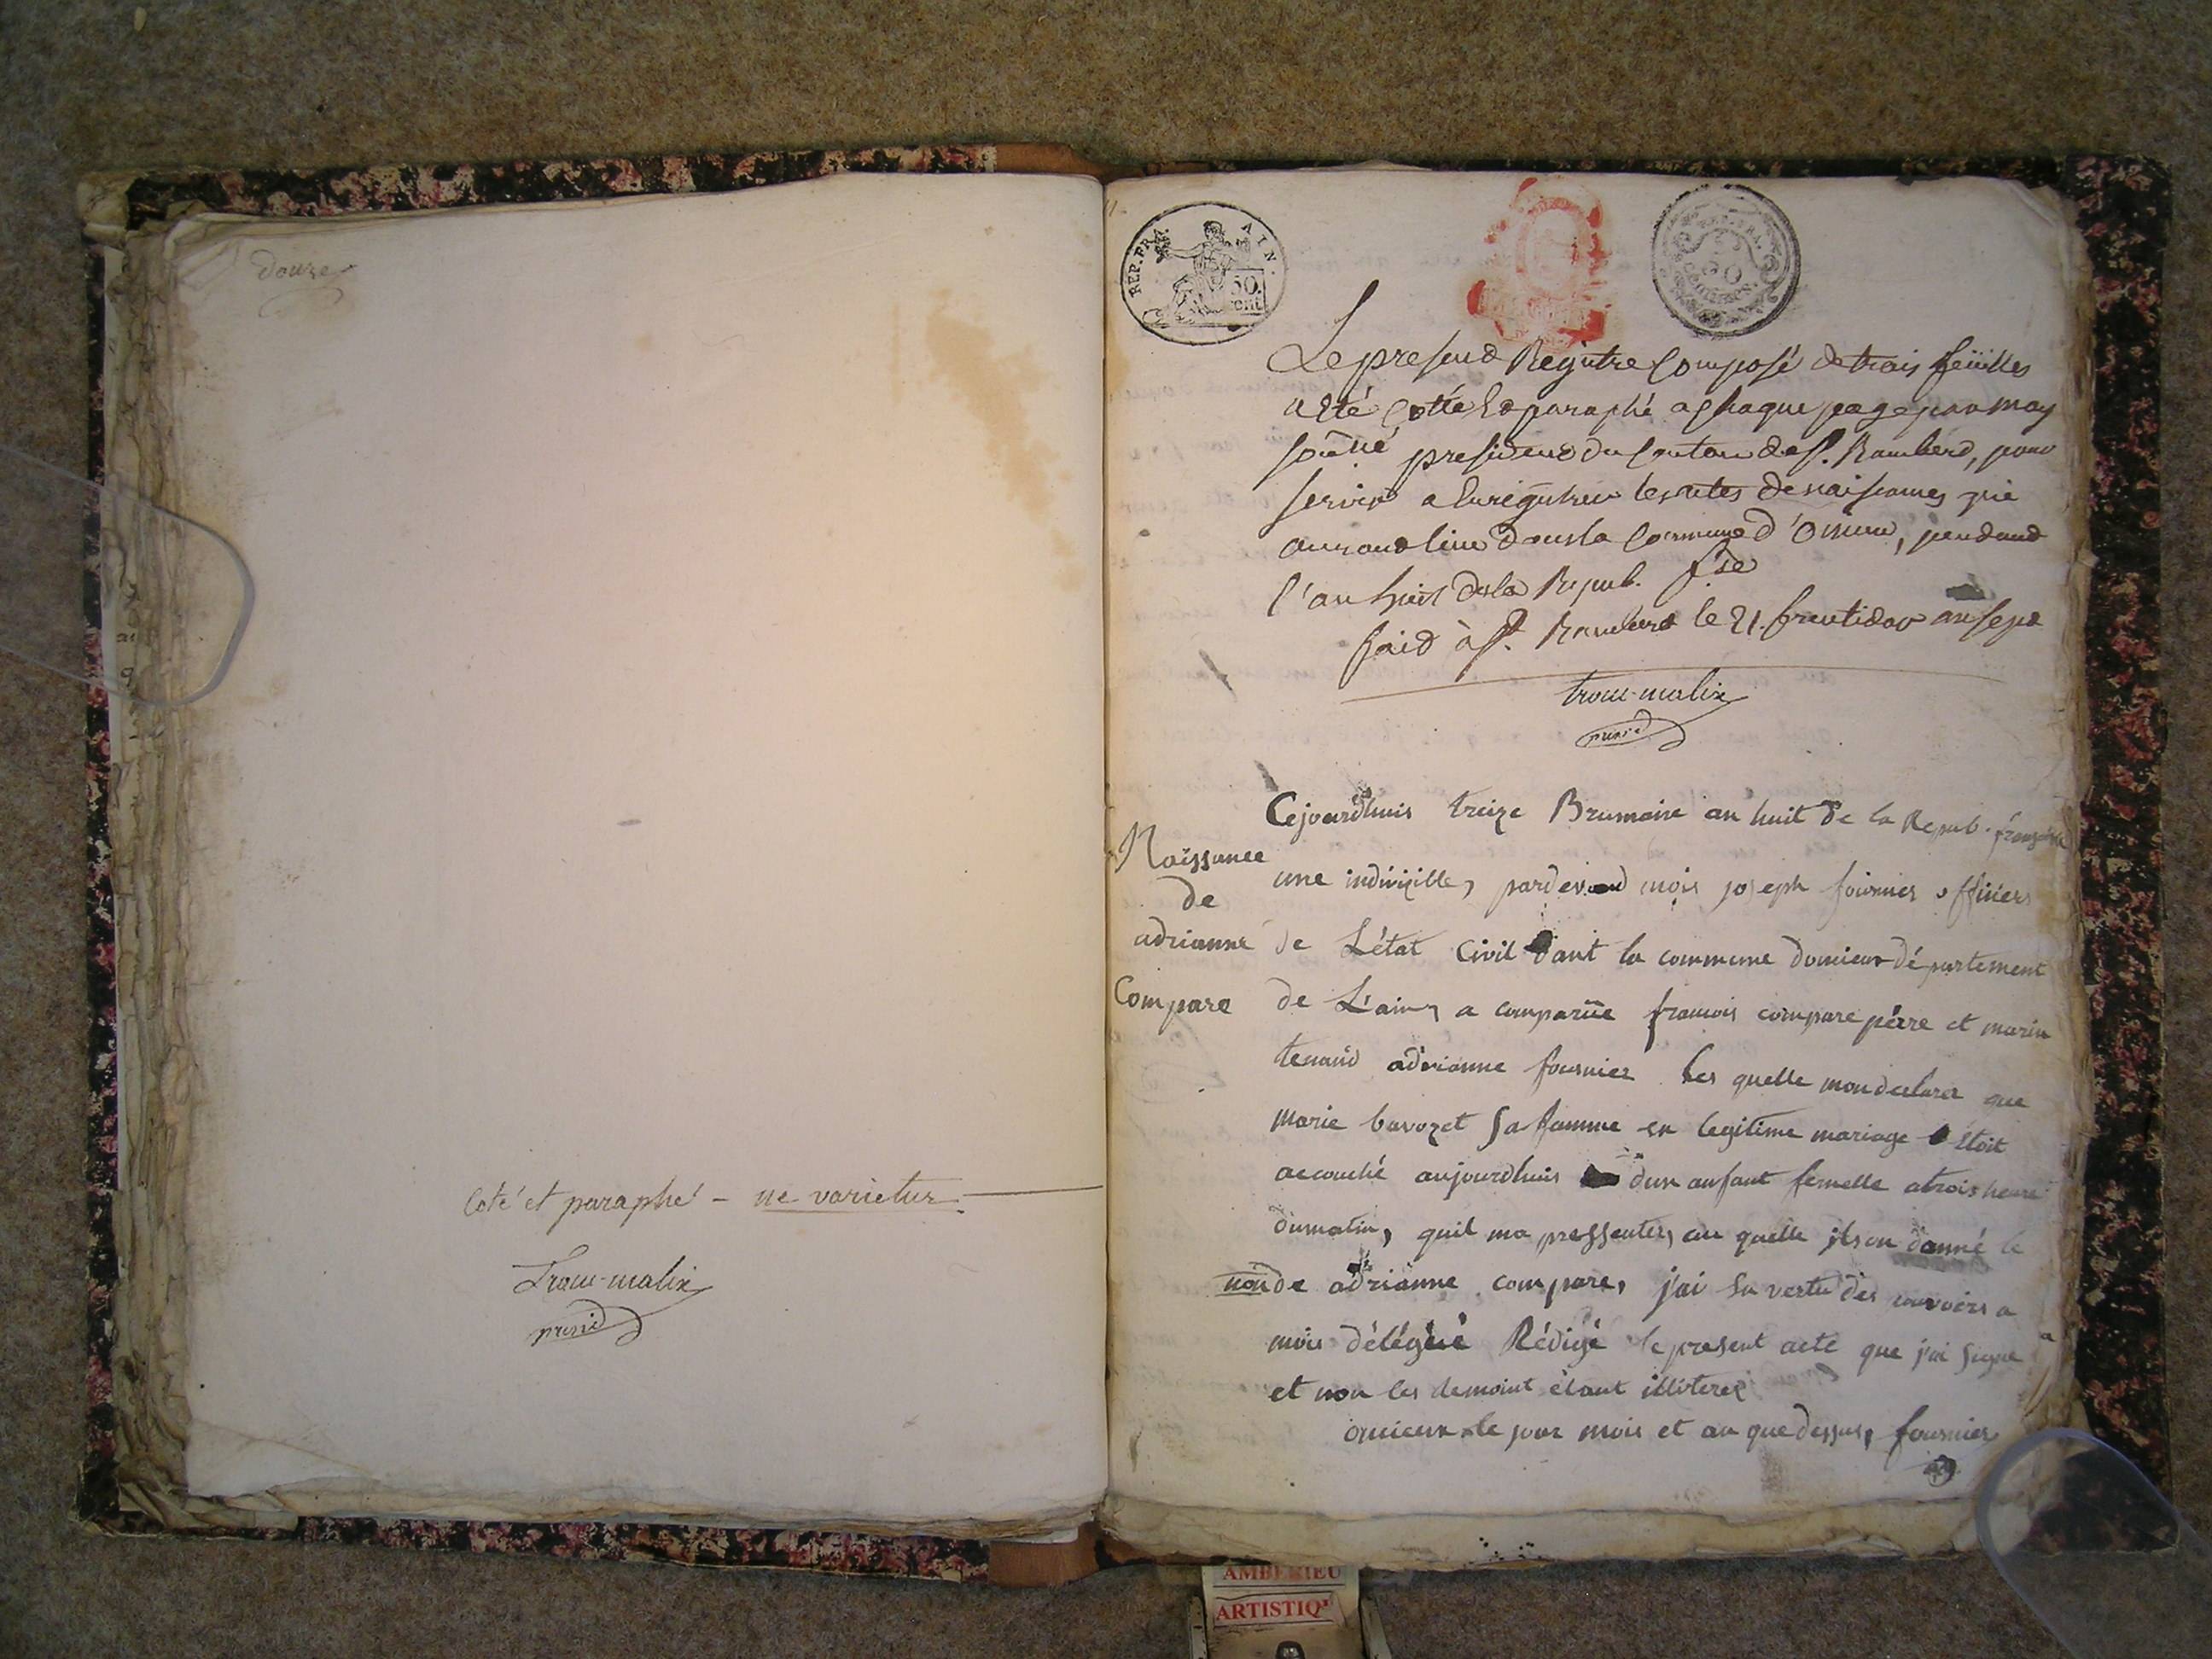 douze
Coté et paraphé - ne varietur
Trocu-malix
presid
REP. FRA. AIN.
50. cent
REP. FRA.
50
centimes.
Le present Registre Composé de trois feüilles
a Eté Cotté Et paraphé a chaque page par moy
president du Canton de St. Rambert, pour
servir a Enregistrer les actes de naissances qui
auront lieu dans la Commune d'Oncieu, pendant
l'an huit de la Repub. fse
fait à St. Rambert le 21. fructidor an sept
trocu-malix
presid
Naissance
de
adrianne
Compare
Cejourdhuis treize Brumaire an huit de la Repub. française
une indivizible, pardevend mois joseph fournier officier
de L'état Civil dant la commune doncieux département
de L'ain, a comparüe francois compare pérre et marin
tenand adrianne fournier les quelle mon declarer que
marie bavozet sa famme en legitime mariage Etoit
accouché aujourdhuis dun anfant femelle a trois heure
dumatin, quil ma pressenter, au quelle ilson danné le
non de adrianne compare, j'ai En vertu des pouvoirs a
mois délégué Rédigé le present acte que j'ai Signe
et non les temoint étant illiterez
oncieux le jour mois et an que dessus, fournier
AMBERIEU
ARTISTIQ